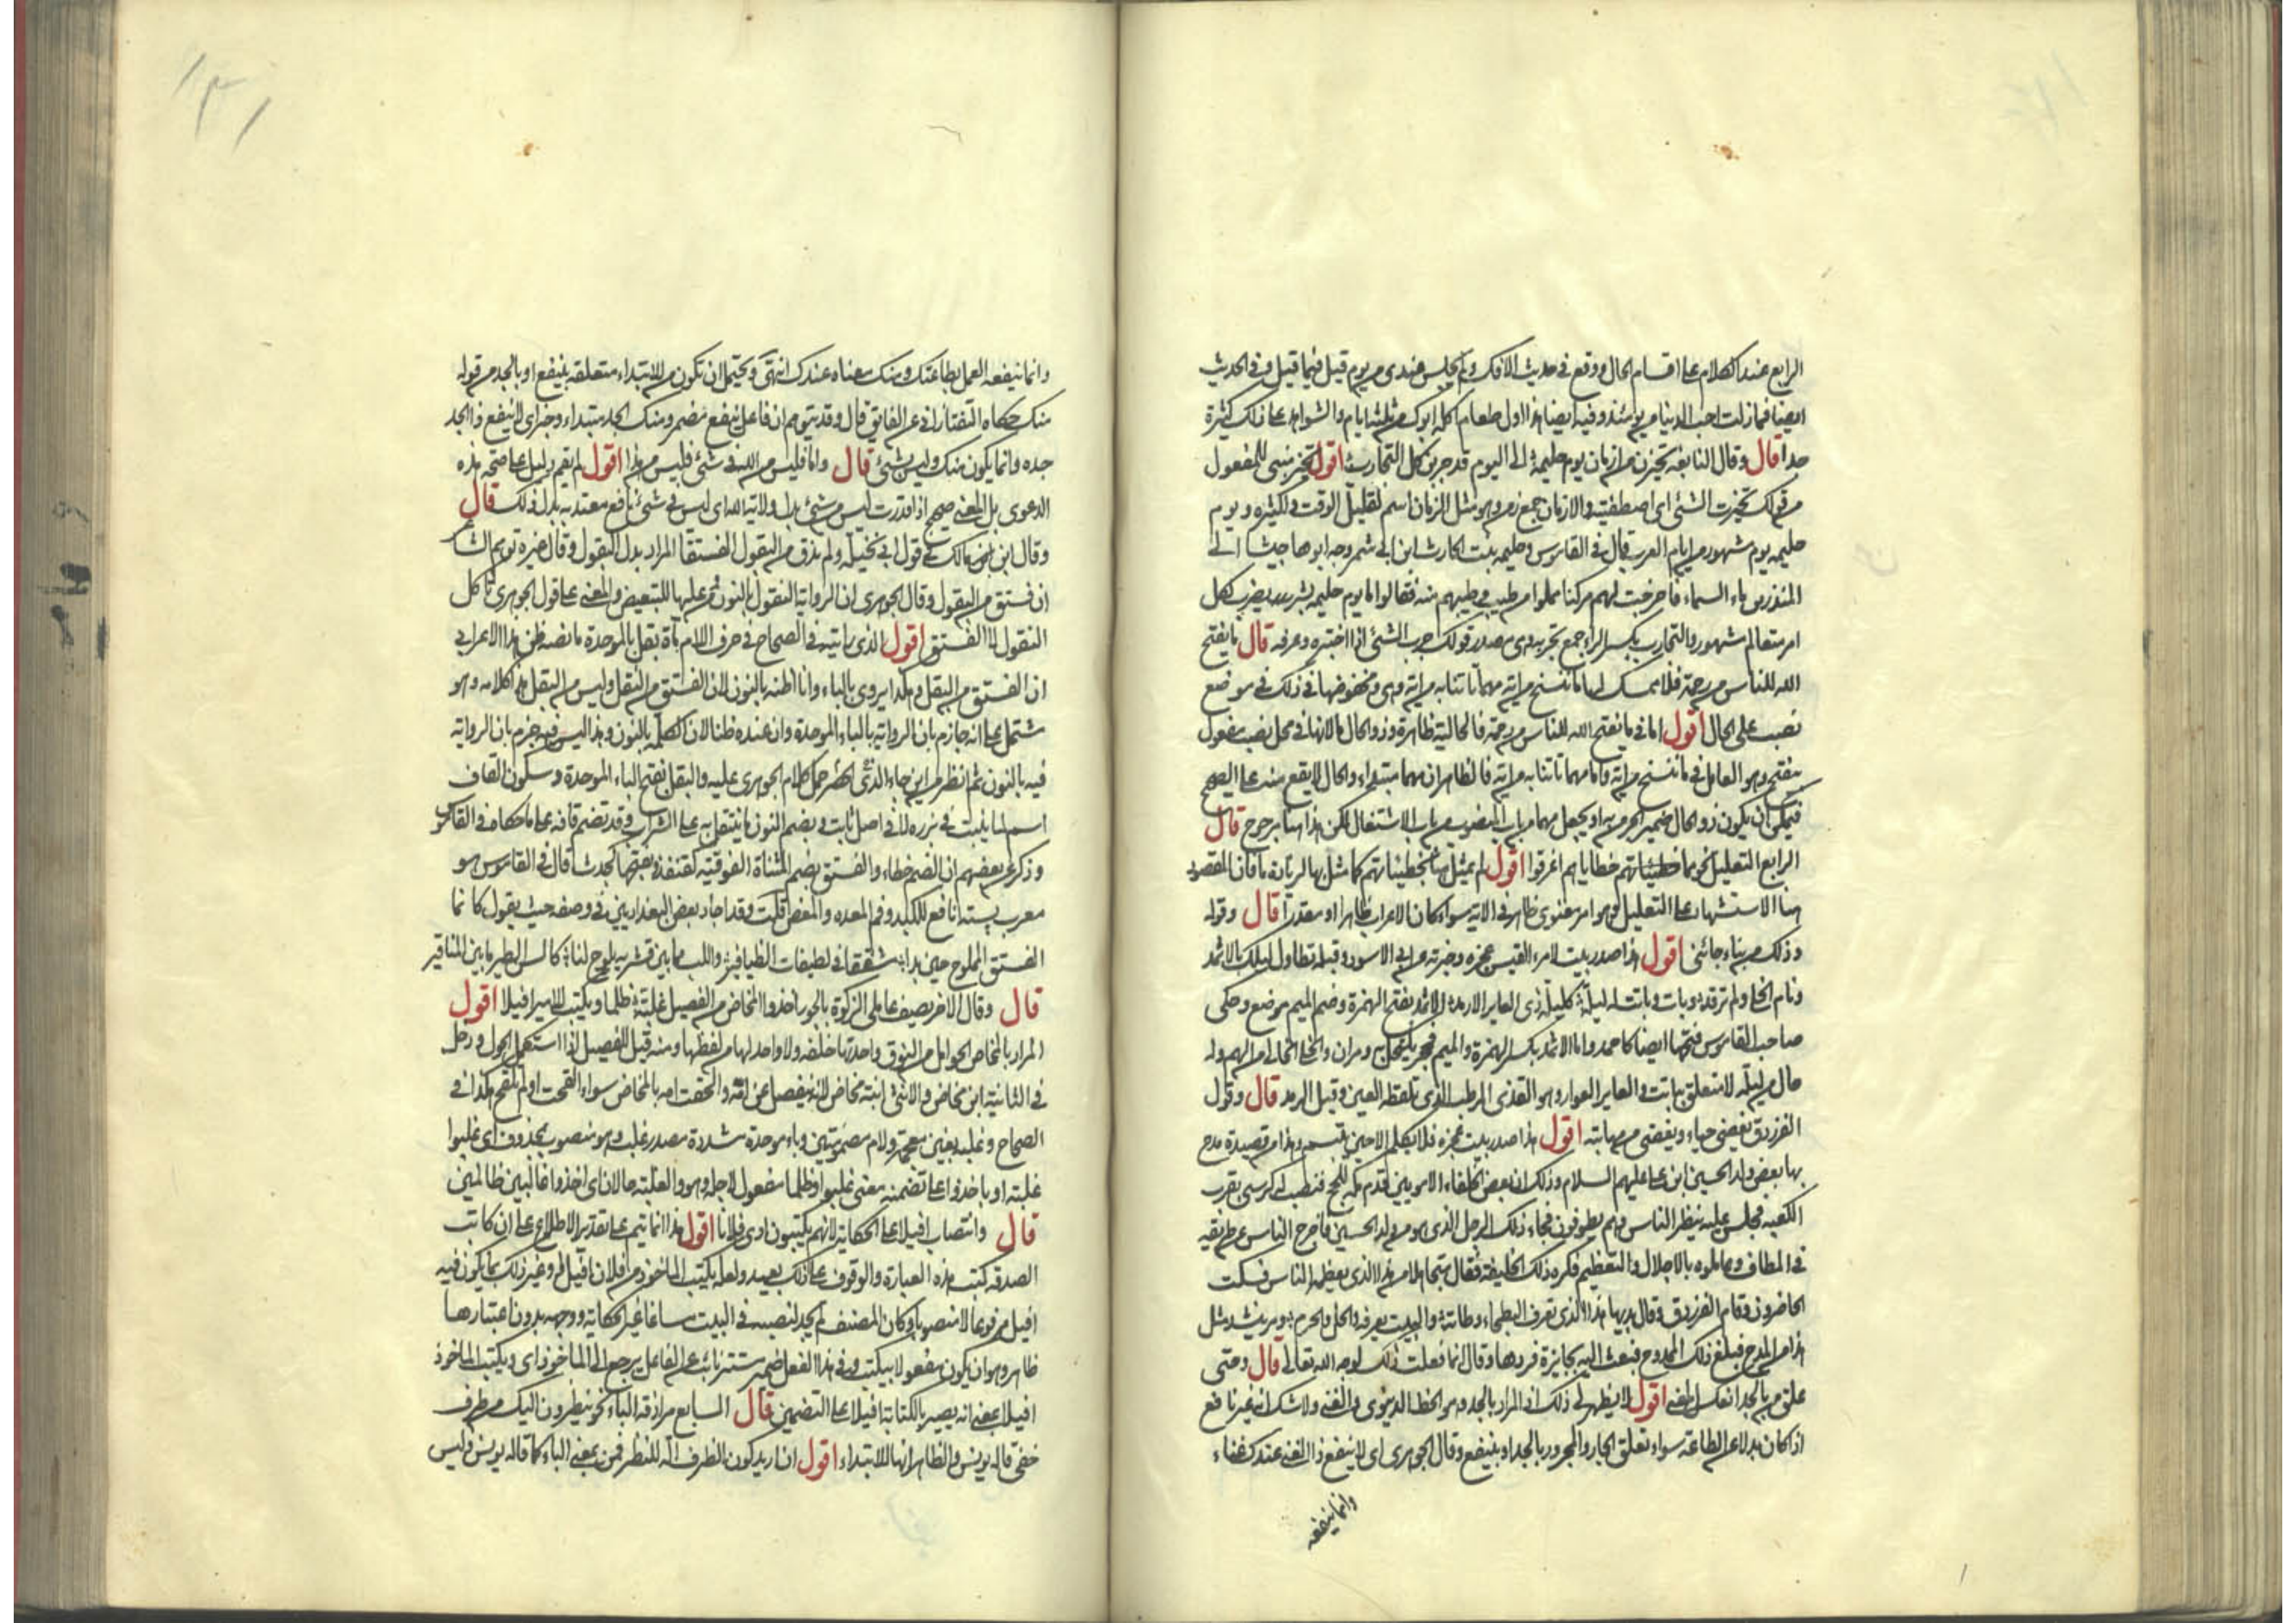 الرابع عند الكلام على اقسام الحال ووقع في حديث الافك ولم يجلس عندي من يوم قيل فيما قيل وفي الحديث
ايضا فما زلت احب الدبا من يومئذ وفيه ايضا هذا اول طعام اكله ابوك من ثلثة ايام والشواهد على ذلك كثيرة
جدا قال وقال النابغة تخيرن من ازمان يوم حليمة الى اليوم قد جربن كل التجارب اقول تخير مبني للمفعول
من قولك تخيرت الشئ اى اصطفيته والازمان جمع زمن وهو مثل الزمان اسم لقليل الوقت ولكثيره ويوم
حليمه يوم مشهور من ايام العرب قال في القاموس وحليمه بنت الحارث ابن ابي شمر وجه ابوها جيشا الى
المنذر بن ماء السماء فاخرجت لهم مركنا من طيب وطيبهم منه فقالوا ما يوم حليمه بسر يضرب لكل
امر متعالم مشهور والتجارب بكسر الراء جمع تجربه وهي مصدر قولك جرب الشئ اذا اختبره وعرفه قال ما يفتح
الله للناس من رحمة فلا ممسك لها ما ننسخ من اية مهما تاتنا به من اية وهي ومخفوضها في ذلك في موضع
نصب على الحال اقول اما في ما يفتح الله للناس من رحمة فالحالية ظاهرة وذو الحال ما لانها في محل نصب مفعول
يفتح وهو العامل في ما ننسخ من اية واما مهما تاتنا به من اية فالظاهر ان مهما مبتداء والحال لا يقع منه على الصحيح
فيمكن ان يكون ذو الحال ضمير المجرور به او يجعل مهما من باب المنصوب من باب الاشتغال لكن هذا هنا مرجوح قال
الرابع التعليل نحو مما خطيئاتهم خطاياهم اغرقوا اقول لم يمثل هنا بخطيئاتهم كما مثل بها لزيادة ما فان المقصود
هنا الاستشهاد على التعليل وهو امر معنوى ظاهر في الاية سواء كان الاعراب ظاهرا او مقدرا قال وقوله
وذلك من نباء جائني اقول هذا صدر بيت لامرء القيس عجزه وخبرته عن ابي الاسود وقبله تطاول ليلك بالاثمد
ونام الخلى ولم ترقد وبات وباتت له ليلة كليلة ذى العاير الارمد الاثمد بفتح الهمزة وضم الميم موضع وحكى
صاحب القاموس فتحها ايضا كاحمد واما الاثمد بكسر الهمزة والميم فحجر يكتحل به ومران والخلى الخالى من الهم وله
حال من ليلة لا متعلق بباتت والعاير العوار وهو القذى الرطب الذى تلفظه العين وقيل الرمد قال وقول
الفرزدق يغضى حياء ويغضى من مهابته اقول هذا صدر بيت عجزه فلا يكلم الا حين يبتسم وهذا من قصيدة مدح
بها بعض ولد الحسين ابن على عليهم السلام وذلك ان بعض الخلفاء الامويين قدم مكه للحج فنصب له كرسى بقرب
الكعبه فجلس عليه ينظر الناس وهم يطوفون فجاء ذلك الرجل الذى هو من ولد الحسين فافرج الناس عن طريقه
في المطاف وعاملوه بالاجلال والتعظيم فكره ذلك الخليفة فقال متجاهلا من هذا الذى يعظمه الناس فسكت
الحاضرون وقام الفرزدق وقال بديها هذا الذى تعرف البطحاء وطاته والبيت يعرفه والحل والحرم ومر ينشد مثل
هذا من المدح فبلغ ذلك الممدوح فبعث اليه بجايزة فردها وقال انما فعلت ذلك لوجه الله تعالى قال ومتى
علق من بالجد انعكس المعنى اقول لا يظهر لى ذلك اذ المراد بالجد هو الحظ الدنيوى والغنى ولا شك انه غير نافع
اذا كان بدلا عن الطاعة سواء تعلق الجار والمجرور بالجد او بينفع وقال الجوهرى اى لا ينفع ذا الغنى عندك غناء
وانما ينفعه
١٣١
وانما ينفعه العمل بطاعتك ومنك معناه عندك انتهى ويحتمل ان تكون من للابتداء متعلقة بينفع او بالجد من قوله
منك حكاه التفتازانى عن الفايق قال وقد يتوهم ان فاعل ينفع مضمر ومنك الجد مبتداء وخبر اى لا ينفع ذا الجد
جده وانما يكون منك وليس بشئ قال واما فليس من الله في شئ فليس من هذا اقول لم يقم دليل على صحة هذه
الدعوى بل المعنى صحيح اذا قدرت ليس من شئ بدل ولاية الله اى ليس في شئ نافع معتد به بدل ذلك قال
وقال ابن مالك في قول ابي نخيله ولم تذق من البقول الفستقا المراد بدل البقول وقال غيره توهم الشاعر
ان فستق من البقول وقال الجوهرى ان الرواية النقول بالنون ومن عليها للتبعيض والمعنى على قول الجوهرى تاكل
النقول الا الفستق اقول الذى رايته في الصحاح في حرف اللام مادة بقل بالموحدة ما نصه ظن هذا الاعرابي
ان الفستق من البقل وهكذا يروى بالباء وانا اظنه بالنون لان الفستق من النقل وليس من البقل هذا كلامه وهو
مشتمل على انه جازم بان الرواية بالباء الموحدة وان عنده ظنا لان الكلمة بالنون وهذا ليس فيه جزم بان الرواية
فيه بالنون ثم انظر من اين جاء الذى اقتضى حمل كلام الجوهرى عليه والبقل بفتح الباء الموحدة وسكون القاف
اسم لما ينبت في بزره لا في اصل ثابت وبضم النون ما يتنقل به على الشراب وقد تضم قافه على ما حكاه في القاموس
وذكر بعضهم ان الضم خطاء والفستق بضم المثناة الفوقيه كقنفذ وبفتحها كجندب قال في القاموس هو
معرب پسته نافع للكبد وفم المعده والمغص قلت وقد اجاد بعض البغداديين في وصفه حيث يقول كانما
الفستق المملوح حين بدا مشققا في لطيفات الطيافير واللب ما بين قشريه يلوح لنا كالسن الطير ما بين المناقير
قال وقال الاخر يصف عاملى الزكوة بالجور اخذوا المخاض من الفصيل غلبة ظلما ويكتب للامير افيلا اقول
المراد بالمخاض الحوامل من النوق واحدتها خلفه ولا واحد لها من لفظها ومنه قيل للفصيل اذا استكمل الحول ودخل
في الثانية ابن مخاض والانثى ابنة مخاض لانه ينفصل عن امه والحقت امه بالمخاض سواء لقحت او لم تلقح هكذا في
الصحاح وغلبه بغين معجمه ولام مضمومتين وباء موحدة مشددة مصدر غلب وهو منصوب بمحذوف اى غلبوا
غلبته او باخذوا على تضمنه معنى غلبوا وظلما مفعول لاجله وهو والغلبة حالان اى اخذوا غالبين ظالمين
قال وانتصاب افيلا على الحكاية لانهم يكتبون ادى فلانا اقول هذا انما يتم على تقدير الاطلاع على ان كاتب
الصدقه كتب هذه العبارة والوقوف على ذلك بعيد ولعله يكتب الماخوذ من فلان افيل او غير ذلك مما يكون فيه
افيل مرفوعا لا منصوبا وكان المصنف لم يجد لنصبه في البيت مساغا غير الحكاية ووجهه بدون اعتبارها
ظاهر وهو ان يكون مفعولا بيكتب وفي هذا الفعل ضمير مستتر نائب عن الفاعل يرجع الى الماخوذ اى ويكتب الماخوذ
افيلا بمعنى انه يصير بالكتابة افيلا على التضمين قال السابع مرادفة الباء نحو ينظرون اليك من طرف
خفى قاله يونس والظاهر انها للابتداء اقول ان اريد كون الطرف آلة للنظر فمن بمعنى الباء كما قاله يونس وليس